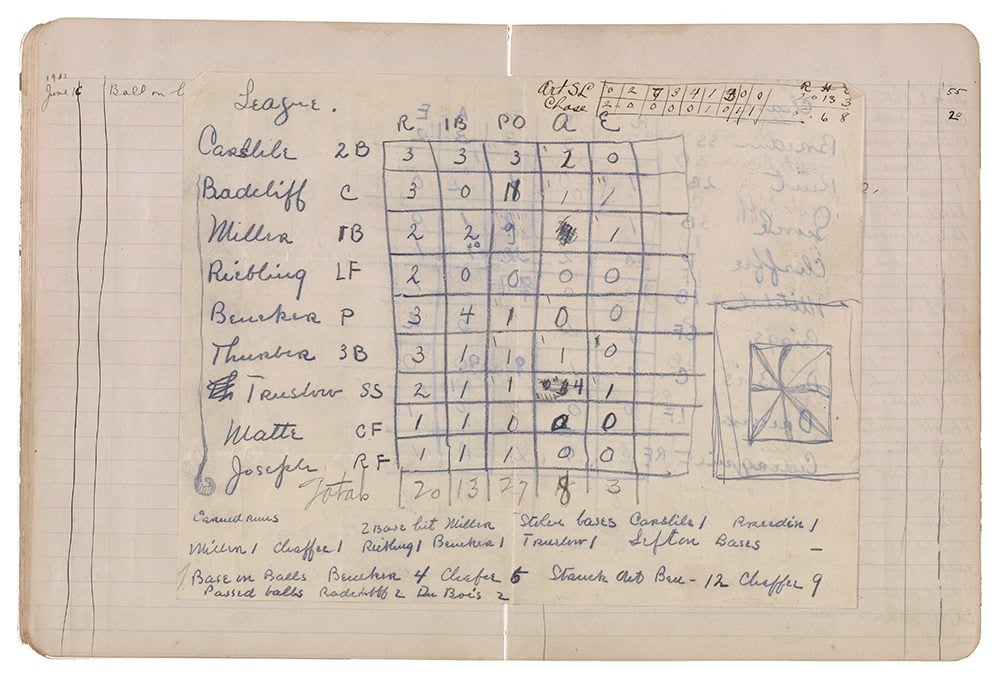 1903
June 16 Ball on
League.
Art SL 0 2 7 3 4 1 3 0 0 20 13 3
Chase 2 0 0 0 0 1 0 1 1 6 8
55
20
R 1B PO A E
Carslile 2B 3 3 3 2 0
Radcliff C 3 0 11 1 1
Miller 1B 2 2 9 1
Riebling LF 2 0 0 0 0
Beucker P 3 4 1 0 0
Thurber 3B 3 1 1 1 0
Truslow SS 2 1 1 4 1
Matte CF 1 1 0 0 0
Joseph RF 1 1 1 0 0
Totals 20 13 27 8 3
Earned runs 2 Base hit Miller Stolen bases Carslile 1 1
Miller 1 Chaffee 1 Riebling 1 Beucker 1 Truslow 1 Left on Bases —
Base on Balls Beucker 4 Chafee 5 Struck Out Beu - 12 Chaffee 9
Passed balls Radcliff 2 Du Bois 2